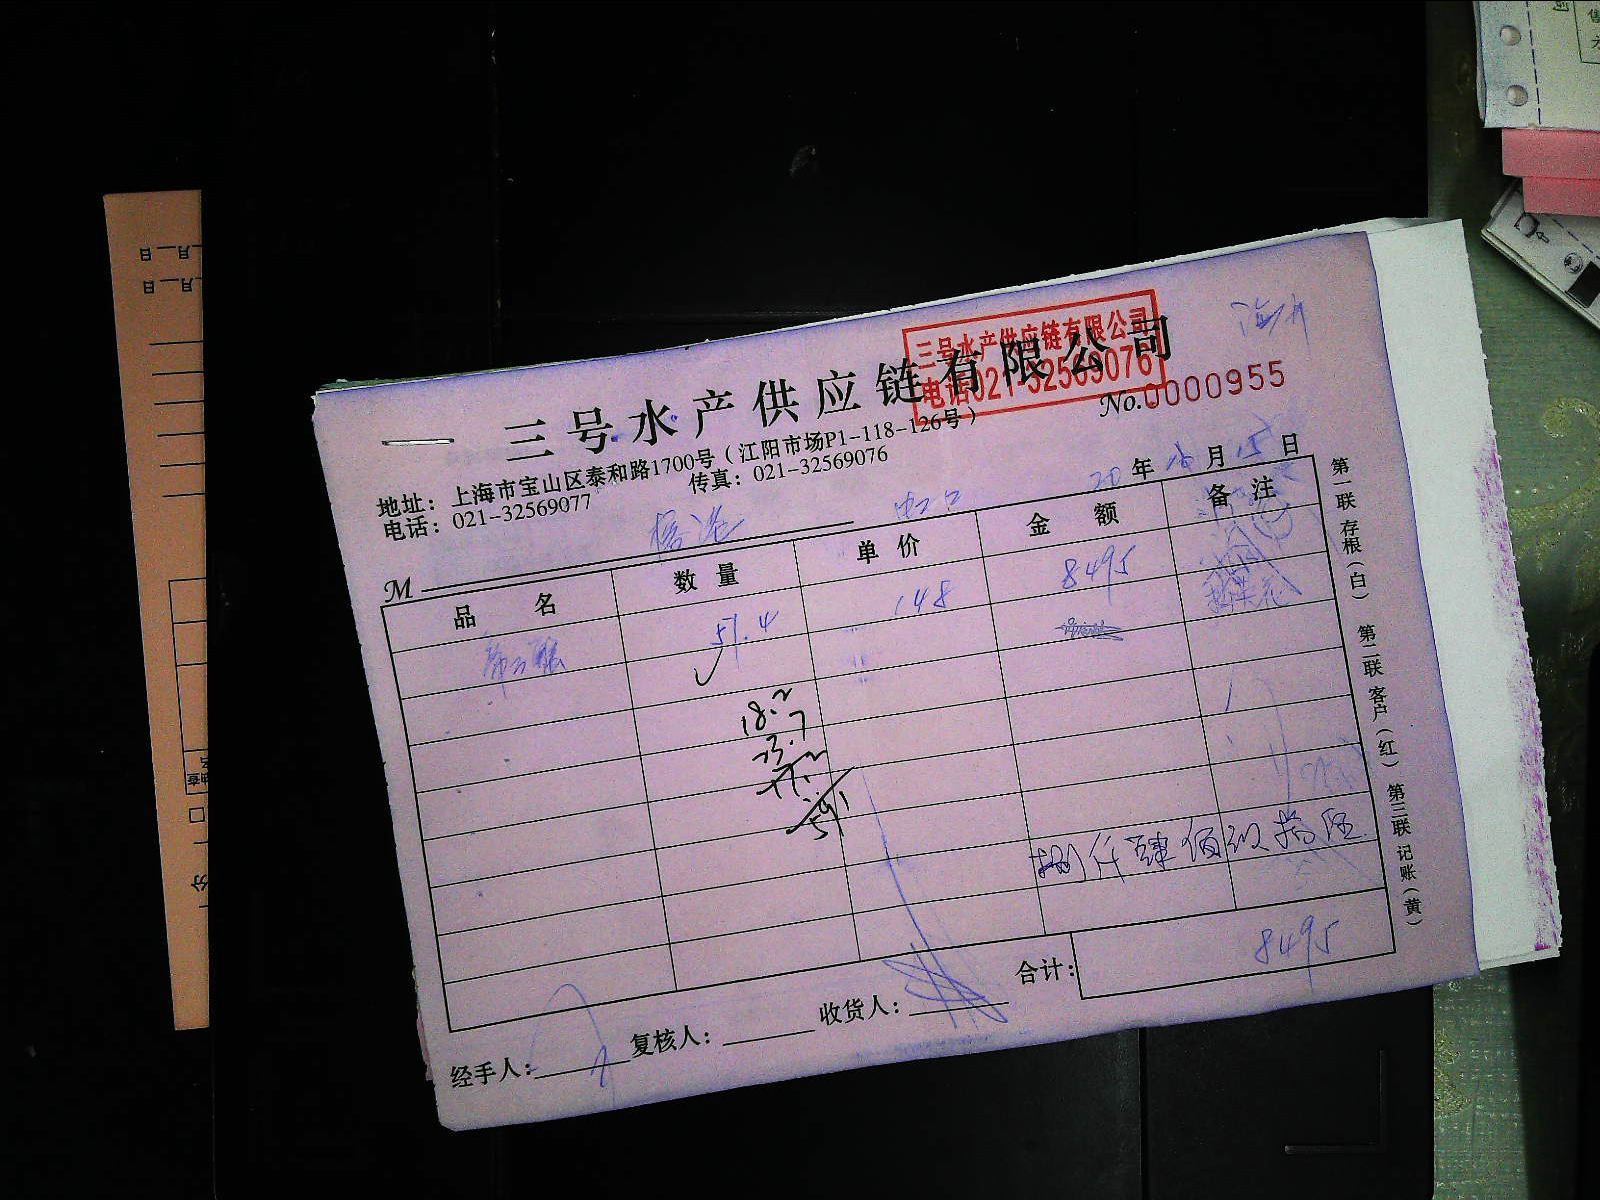 三号水产供应链有限公司
三号水产供应链有限公司
电话021-32569076
No.0000955
地址：上海市宝山区泰和路1700号（江阳市场P1-118-126号）
电话：021-32569077 传真：021-32569076
20 年 10 月 15 日
M
品 名 数 量 单 价 金 额 备 注
57.4 148 8495
18.2
23.7
17.2
59.1
捌仟肆佰玖拾伍
合计： 8495
经手人： 复核人： 收货人：
第一联 存根（白） 第二联 客户（红） 第三联 记账（黄）